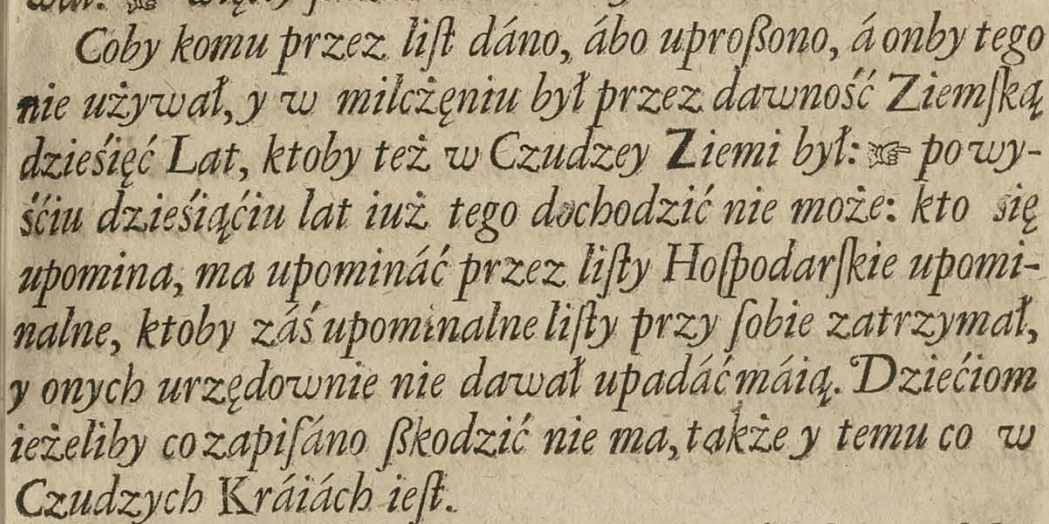 Coby komu przez liſt dáno, ábo uproßono, á onby tego
nie używał, y w milcżęniu był przez dawność Ziemſką
dzieśięć Lat, ktoby też w Czudzey Ziemi był: ☞ po wy-
śćiu dzieśiąćiu lat iuż tego dochodzić nie może: kto się
upomina, ma upomináć przez liſty Hoſpodarſkie upomi-
nalne, ktoby záś upominalne liſty przy ſobie zatrzymał,
y onych urzędownie nie dawał upadáć máią. Dziećiom
ieżeliby co zapiſáno ßkodzić nie ma, także y temu co w
Czudzych Kráiách ieſt.